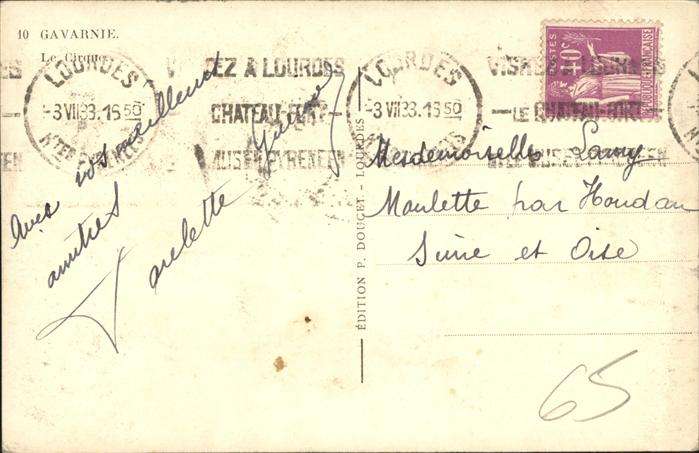 10 GAVARNIE.
Le Cirque
LOURDES
-3 VII 33.16 50
HTES PYRENEES
VISITEZ A LOURDES
CHATEAU-FORT
MUSEE PYRENEEN
LOURDES
-3 VII 33.16 50
VISITEZ A LOURDES
LE CHATEAU-FORT
MUSEE PYRENEEN
POSTES
40c
REPUBLIQUE FRANÇAISE
Avec nos meilleures
amitiés
Yvonne
ÉDITION P. DOUCET - LOURDES
Mesdemoiselles Lamy
Maulette par Houdan
Seine et Oise
65